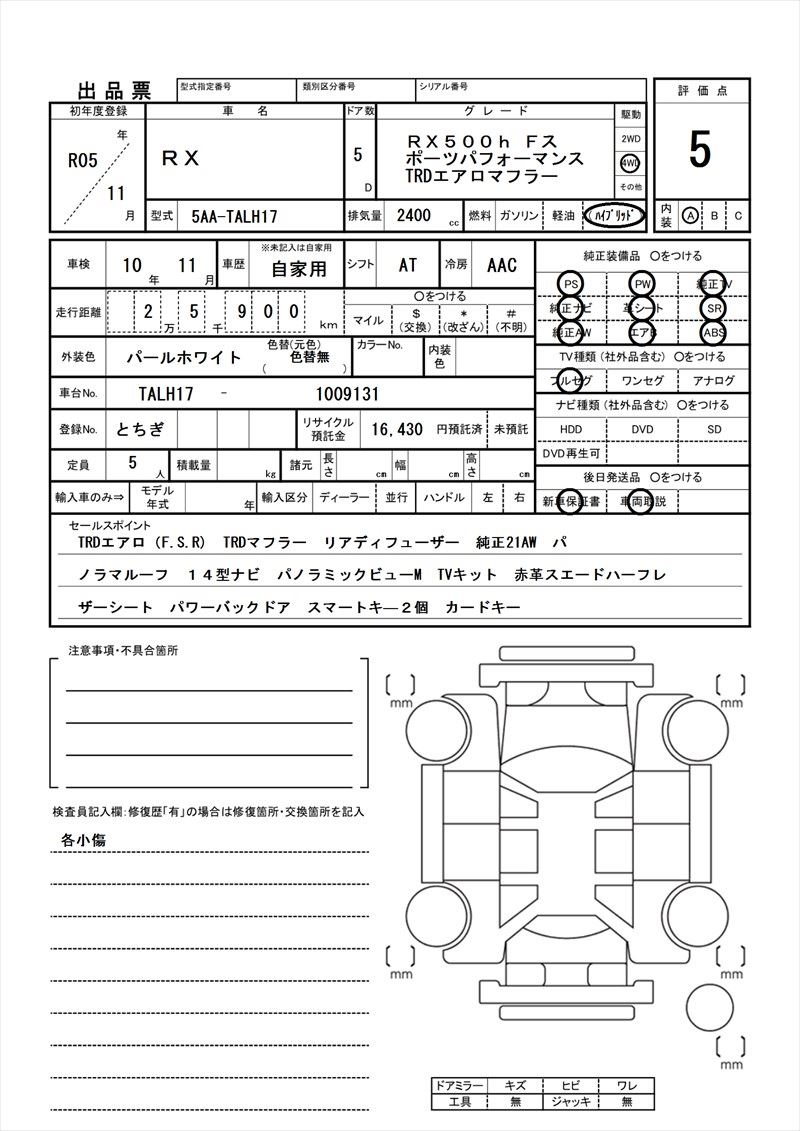 出品票 型式指定番号 類別区分番号 シリアル番号 評価点
初年度登録 車名 ドア数 グレード 駆動
年 R05 11 月
RX
5 D
RX500h Fス
ポーツパフォーマンス
TRDエアロマフラー
2WD
4WD
その他
5
型式 5AA-TALH17 排気量 2400 cc 燃料 ガソリン 軽油 (ﾊｲﾌﾞﾘｯﾄﾞ) 内装 A B C
車検 10 年 11 月 車歴 ※未記入は自家用 自家用 シフト AT 冷房 AAC
走行距離 2 万 5 千 9 0 0 km 〇をつける
マイル $(交換) *(改ざん) #(不明)
外装色 パールホワイト 色替(元色) ( 色替無 ) カラーNo. 内装色
車台No. TALH17 - 1009131
登録No. とちぎ リサイクル預託金 16,430 円預託済 未預託
定員 5 人 積載量 kg 諸元 長さ cm 幅 cm 高さ cm
輸入車のみ⇒ モデル年式 年 輸入区分 ディーラー 並行 ハンドル 左 右
純正装備品 〇をつける
PS PW 純正TV
純正ナビ 革シート SR
純正AW エアB ABS
TV種類(社外品含む) 〇をつける
フルセグ ワンセグ アナログ
ナビ種類(社外品含む) 〇をつける
HDD DVD SD
DVD再生可
後日発送品 〇をつける
新車保証書 車両取説
セールスポイント
TRDエアロ(F.S.R) TRDマフラー リアディフューザー 純正21AW パ
ノラマルーフ 14型ナビ パノラミックビューM TVキット 赤革スエードハーフレ
ザーシート パワーバックドア スマートキ―2個 カードキー
注意事項・不具合箇所
検査員記入欄：修復歴「有」の場合は修復箇所・交換箇所を記入
各小傷
[ ] mm [ ] mm
[ ] mm [ ] mm
[ ] mm
ドアミラー キズ ヒビ ワレ
工具 無 ジャッキ 無